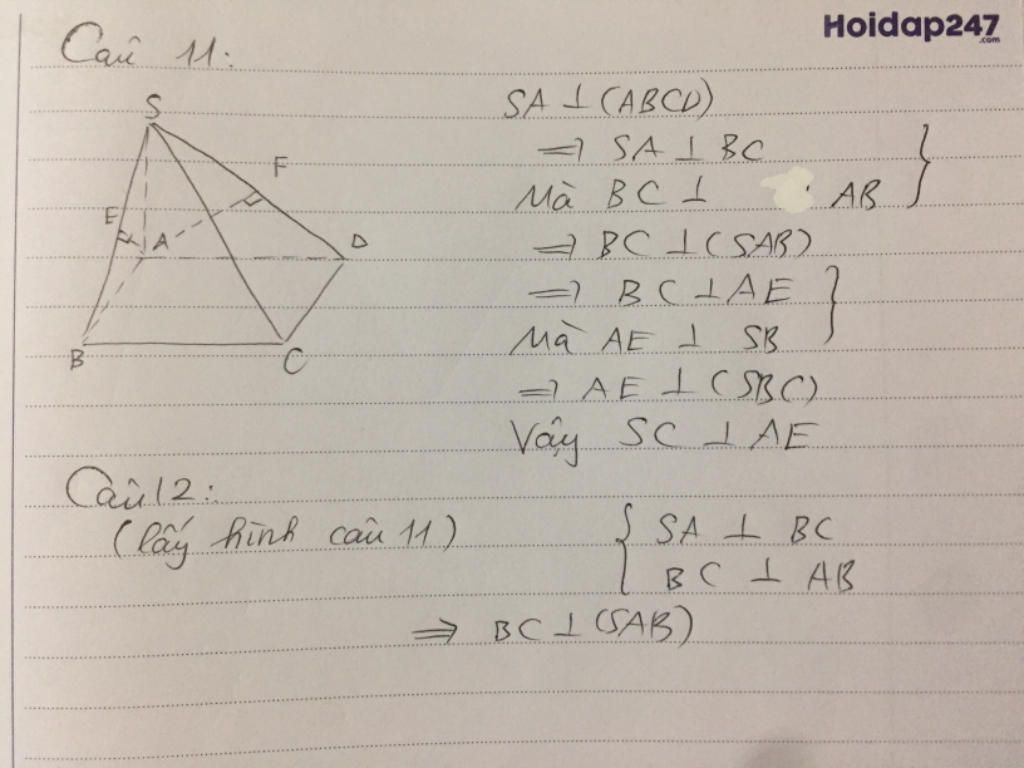 Hoidap247
.com
Câu 11:
S
F
E
A
D
B
C
SA ⊥ (ABCD)
=> SA ⊥ BC
Mà BC ⊥ AB
=> BC ⊥ (SAB)
=> BC ⊥ AE
Mà AE ⊥ SB
=> AE ⊥ (SBC)
Vậy SC ⊥ AE
Câu 12:
(lấy hình câu 11)
{ SA ⊥ BC
BC ⊥ AB
=> BC ⊥ (SAB)